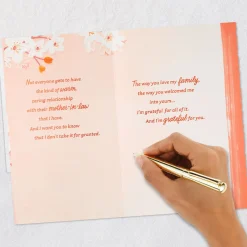 Not everyone gets to have
the kind of warm,
caring relationship
with their mother-in-law
that I have.
And I want you to know
that I don't take it for granted.
The way you love my family,
the way you welcomed me
into yours...
I'm grateful for all of it.
And I'm grateful for you.